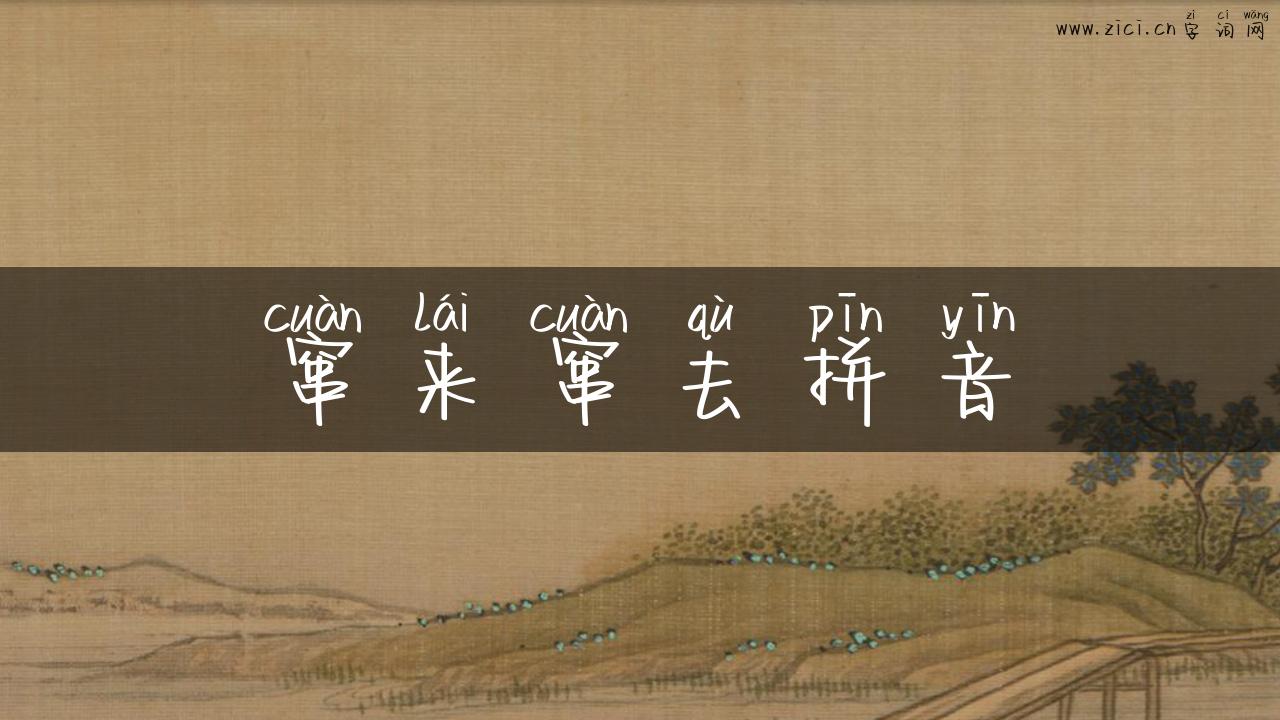 zì cí wǎng
www.zici.cn 字 词 网
cuàn lái cuàn qù pīn yīn
窜 来 窜 去 拼 音